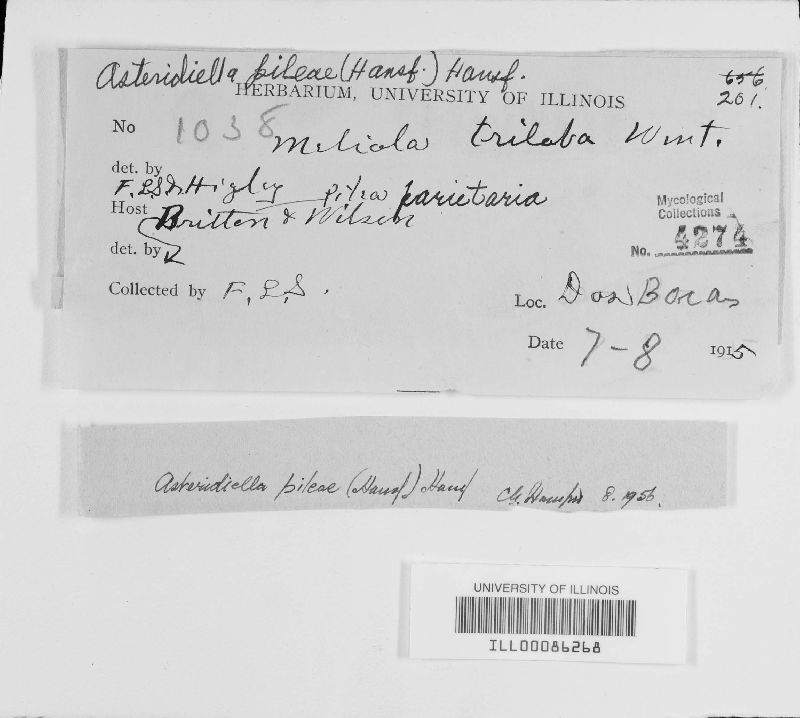 Asteridiella pileae (Hansf.) Hansf.
656
201.
HERBARIUM, UNIVERSITY OF ILLINOIS
No 1038 Meliola triloba Wint.
det. by
F.L.S. & Higley Pilea parietaria
Host Britten & Wilson
det. by
Mycological
Collections
No. 4274
Collected by F.L.S.
Loc. Dos Bocas
Date 7-8 1915
Asteridiella pileae (Hansf.) Hansf 8. 1956.
UNIVERSITY OF ILLINOIS
ILL00086268